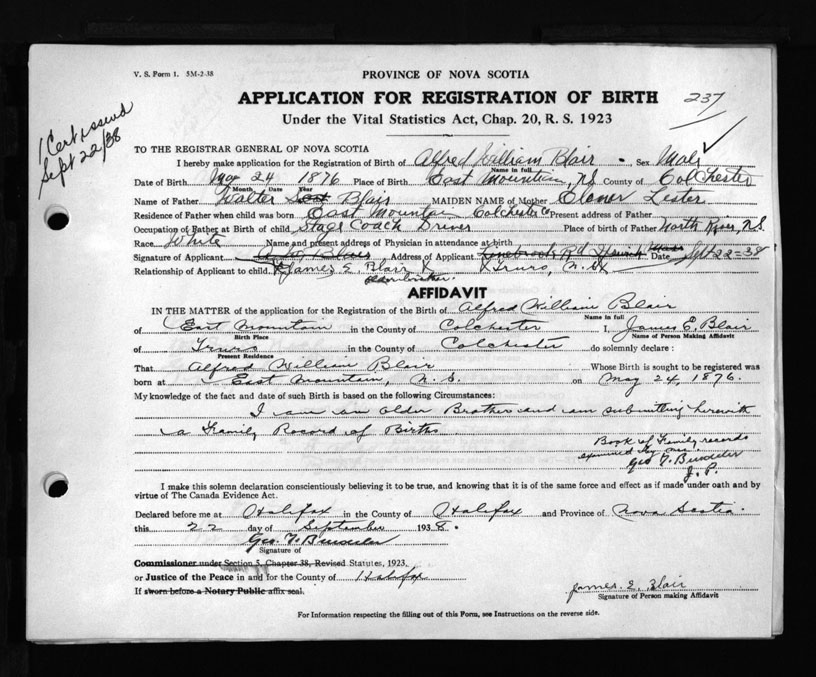 V. S. Form 1. 5M-2-38
PROVINCE OF NOVA SCOTIA
APPLICATION FOR REGISTRATION OF BIRTH 237
Under the Vital Statistics Act, Chap. 20, R. S. 1923
1 Cert issued
Sept 22/38
TO THE REGISTRAR GENERAL OF NOVA SCOTIA
I hereby make application for the Registration of Birth of Alfred William Blair Sex Male
Name in full
Date of Birth May 24 1876 Place of Birth East Mountain, N.S. County of Colchester
Month Date Year
Name of Father Walter Blair MAIDEN NAME of Mother Elenor Lester
Residence of Father when child was born East Mountain Colchester Co Present address of Father
Occupation of Father at Birth of child Stage Coach Driver Place of birth of Father North River, N.S.
Race White Name and present address of Physician in attendance at birth
Signature of Applicant Address of Applicant Date Sept 22-38
Relationship of Applicant to child X James E. Blair X X Truro, N.S. X
older brother.
AFFIDAVIT
IN THE MATTER of the application for the Registration of the Birth of Alfred William Blair
Name in full
of East Mountain in the County of Colchester I, James E. Blair
Birth Place Name of Person Making Affidavit
of Truro in the County of Colchester do solemnly declare :
Present Residence
That Alfred William Blair Whose Birth is sought to be registered was
born at East Mountain, N. S. on May 24, 1876.
My knowledge of the fact and date of such Birth is based on the following Circumstances:
I am an older Brother and am submitting herewith
a Family Record of Births
Book of Family records
examined by me.
Geo. F.
J. P.
I make this solemn declaration conscientiously believing it to be true, and knowing that it is of the same force and effect as if made under oath and by
virtue of The Canada Evidence Act.
Declared before me at Halifax in the County of Halifax and Province of Nova Scotia.
this 22 day of September 1938.
Geo. F.
Signature of
Commissioner under Section 5, Chapter 38, Revised Statutes, 1923.
or Justice of the Peace in and for the County of Halifax
If sworn before a Notary Public affix seal.
James E. Blair
Signature of Person making Affidavit
For Information respecting the filling out of this Form, see Instructions on the reverse side.